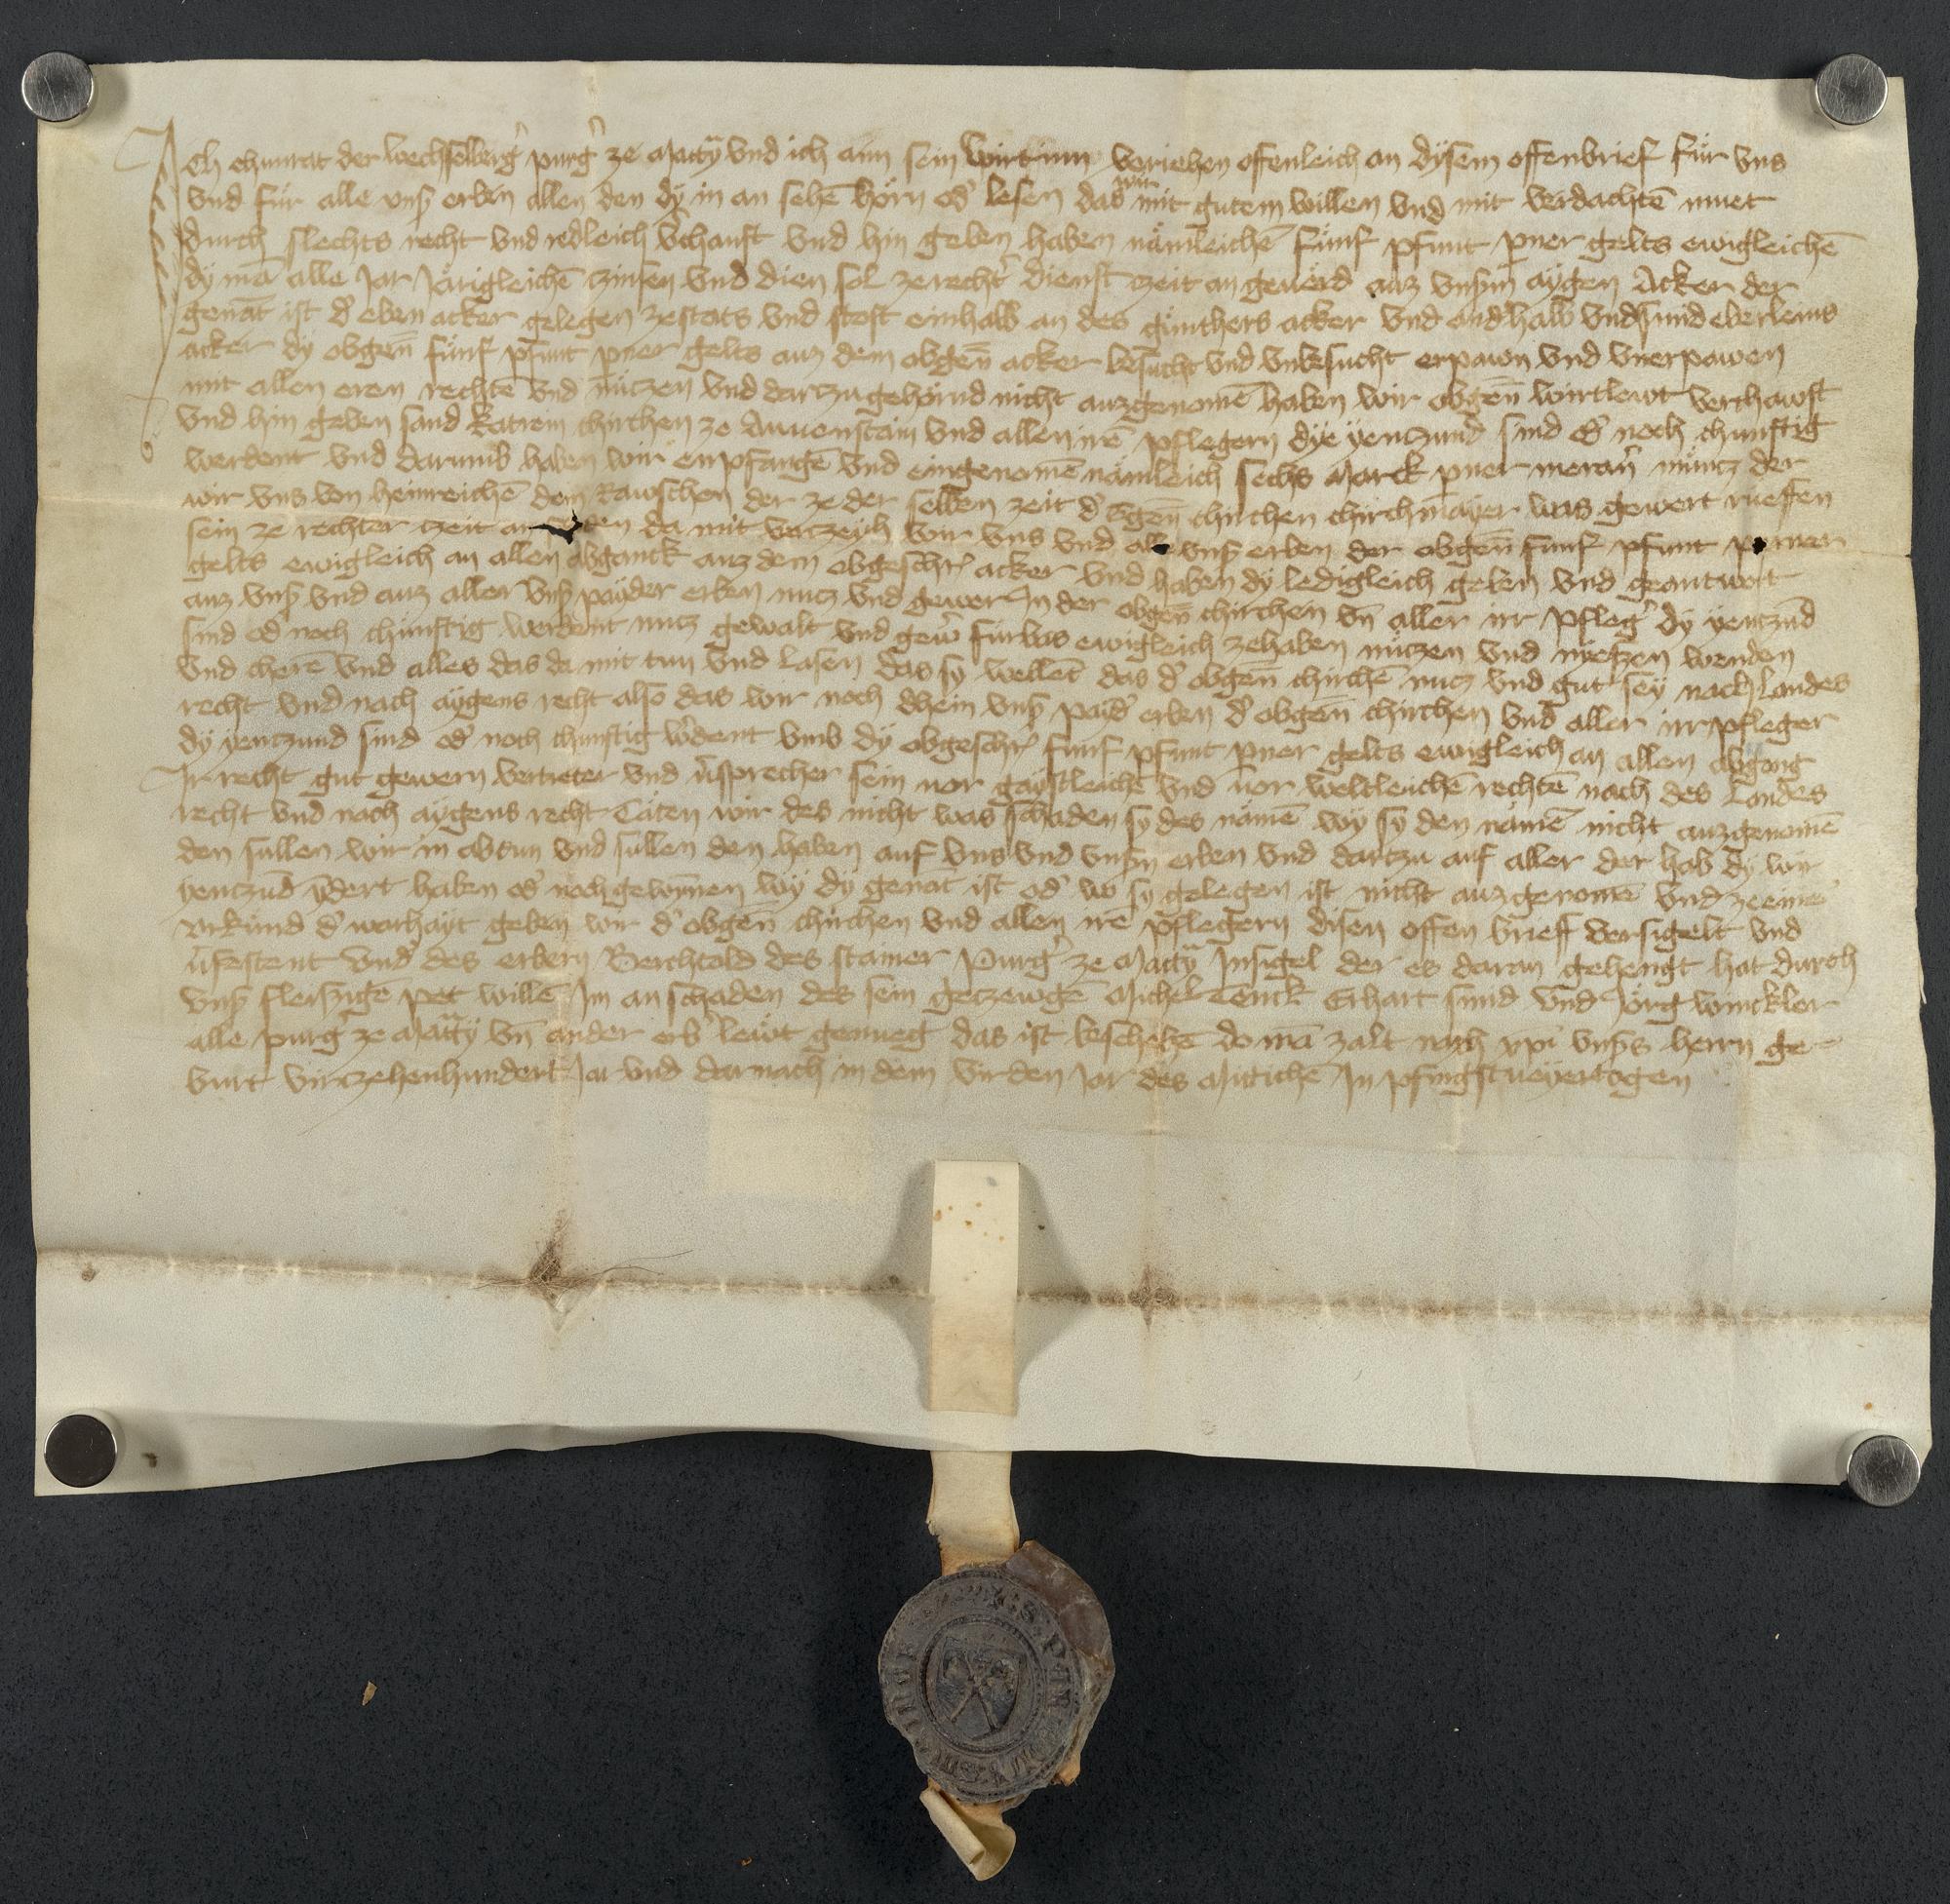 Ich chunrat der wechsolberg᷑ purg᷑ ze Matrÿ vnd ich ann sein Wirtinn veriehen offenleich an dysem offenbrief für vns
vnd für alle vnß erben allen den dÿ in an sehē hörn od᷑ lesen das wir mit gutem willen vnd mit verdachtē muet
durch slechts recht vnd redleich v᷑chauft vnd hin geben haben nämleichē fümf pfunt pner gelts ewigleichē
dÿ mā alle Jar Järigleichē czinsen vnd dien sol ze recht᷑ dienst czeit an geuerd auz vnßm aÿgen Acker der
genāt ist d᷑ eben acker gelegen ze stats vnd stost einhalb an des günthers acker vnd andhalb vndsund eberleins
acker dÿ obgen̄ fümf pfunt pner gelts auz dem obgen̄ acker besucht vnd vnbesucht erpawn vnd vnerpawen
mit allen eren rechtē vnd nüczen vnd darczu gehörnd nicht auzgenomē haben wir obgen̄ wirtlewt verchawft
vnd hin geben sand Katrein chirchen ze Auuenstain vnd allen irē pflegern dÿe ÿenczund sind od᷑ noch chunftig
werdent vnd darumb haben wir enpfangē vnd eingenomē nämleich sechs Marck pner meran᷑ müncz der
wir vns von heinreichē dem Rawschen der ze der selben zeit d᷑ egen̄ chirchen chirchmaÿer was gewert rueffen
sein ze rechter czeit an den da mit verzeÿh wir vns vnd alle vnß erben der obgen̄ fumf pfunt perner
gelts ewigleich an allen abganck auz dem obgeschr᷑ acker vnd haben dÿ ledigleich geben vnd geantwort
auz vnß vnd auz aller vnß paÿder erben nucz vnd gewer In der obgen̄ chirchen vn̄ aller irr pfleg᷑ dÿ ÿenczūd
sind od᷑ noch chünftig werdent nucz gewalt vnd gew᷑ fürbas ewigleich ze haben nüczen vnd niessen wenden
vnd cherē vnd alles das da mit tun vnd lasen das sÿ wellēt das d᷑ obgen̄ chirchē nucz vnd gut seÿ nach landes
recht vnd nach aÿgens recht also das wir noch dhein vnß paÿd᷑ erben d᷑ obgen̄ chirchen vnd aller irr pfleger
dÿ ÿenczund sind od᷑ noch chunftig w᷑dent vmb dÿ obgeschr᷑ fumf pfunt pner gelts ewigleich an allen abgang
Ir recht gut gewern vertreter vnd v᷑sprecher sein vor gaÿstleichē vnd vor weltleichē rechtē nach des Landes
recht vnd nach aÿgens recht Täten wir des nicht was schaden sÿ des nämē wÿ sÿ den nämē nicht auzgenomē
den sullen wir in abtun vnd sullen den haben auf vns vnd vnßn erben vnd darczu auf aller der hab dÿ wir
ÿenczūd v᷑dert haben od᷑ noch gewÿnnen wÿ dÿ genāt ist od᷑ wo sÿ gelegen ist nicht auzgenomē vnd ze eine᷑
vrkund d᷑ warhaÿt geben wir d᷑ obgen̄ chirchen vnd allen irē pflegern disen offen brieff versigelt vnd
v᷑festent vnd᷑ des erbern Berchtold des stainer Purg᷑ ze Matrÿ Insigel der es daran gehengt hat durch
vnß fleiszigē pet willē Im an schaden des sein geczewgē Michel Tenck Erhart sund vnd Jörg winckler
alle purg᷑ ze Matrÿ vn̄ ander erb᷑ leẅt genueg das ist beschehē do mā zalt nach xpi vnßs herrn ge-
burt virczehenhundert Jar vnd darnach in dem virden Jar des Mitichē In pfingstueÿertagen